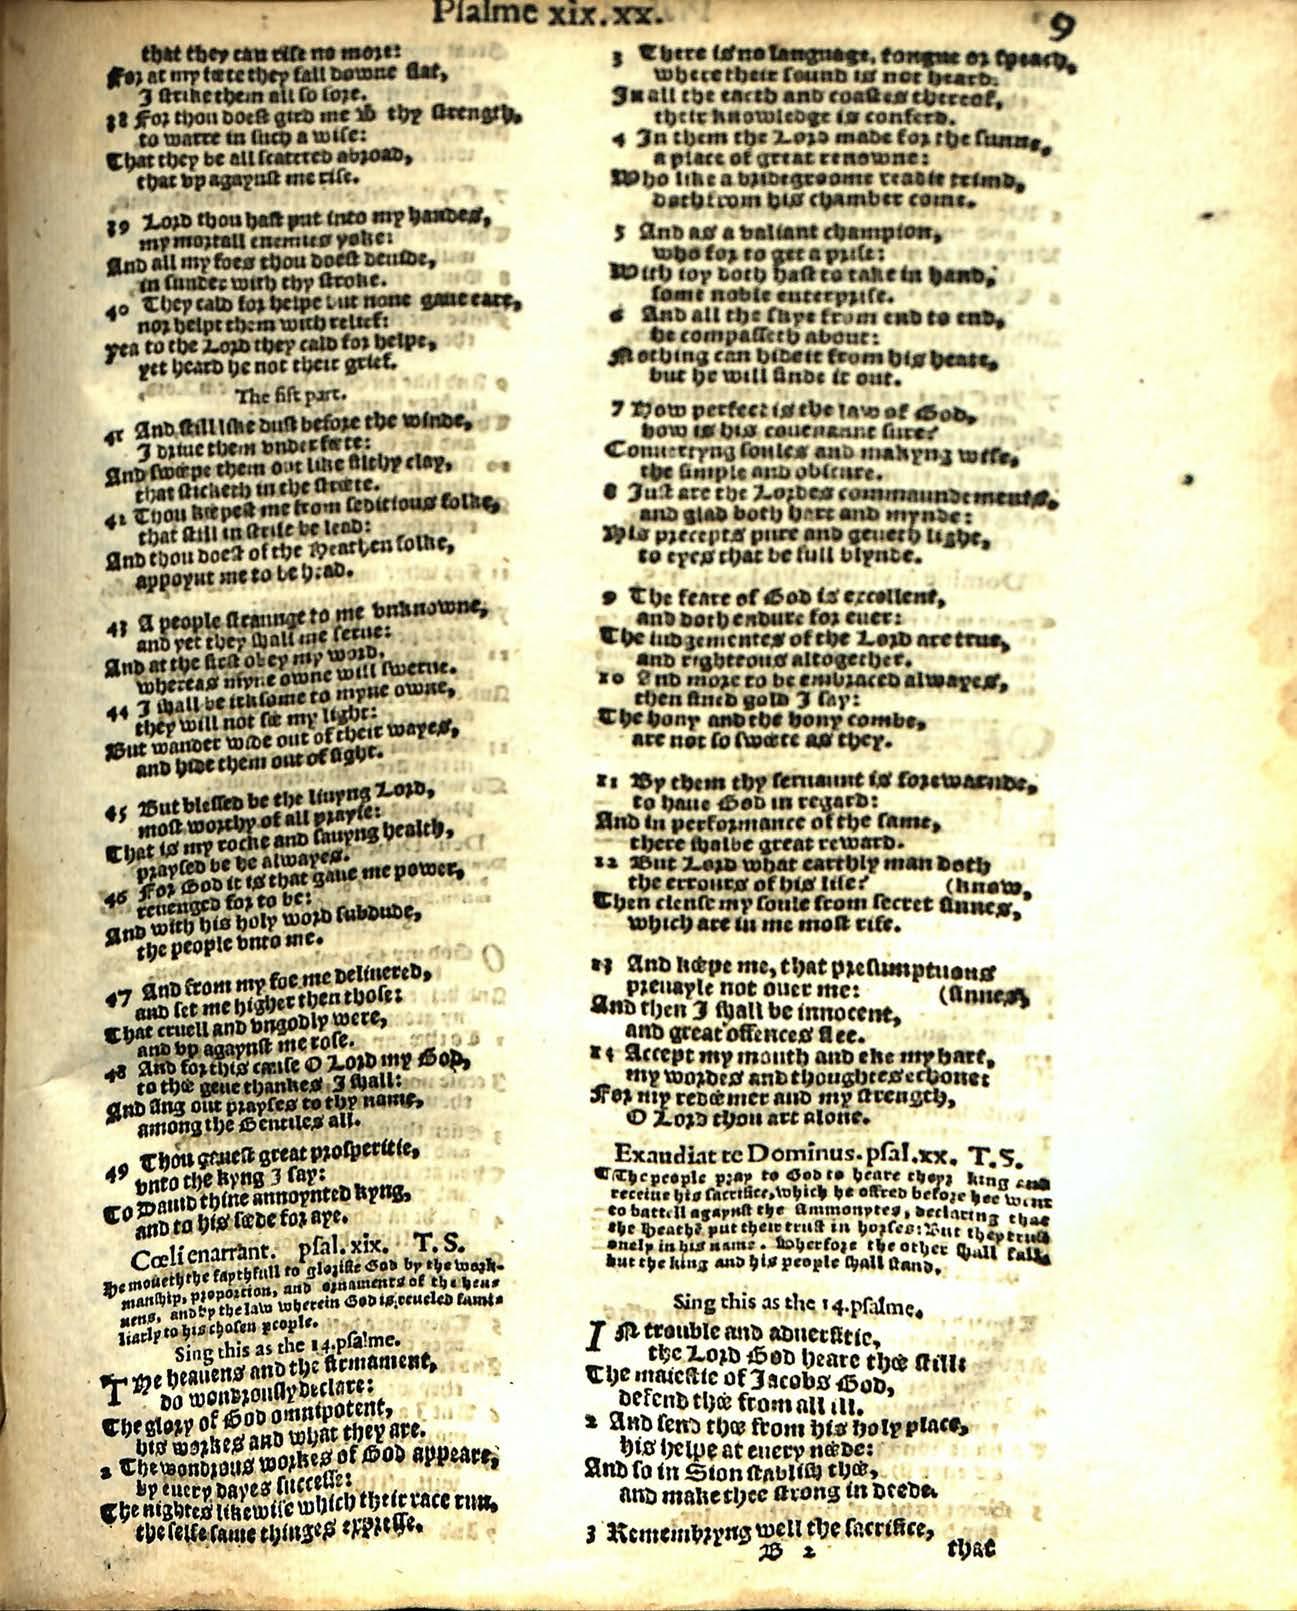 Psalme xix.xx.
9
that they can rise no more:
For at my feete they fall downe flat,
I strike them all so sore.
38 For thou doest gird me wͭ thy strength,
to warre in such a wise:
That they be all scattred abroad,
that vp agaynst me rise.
39 Lord thou hast put into my handes,
my mortall enemies yoke:
And all my foes thou doest deuide,
in sunder with thy stroke.
40 They cald for helpe but none gaue eare,
nor helpt them with relief:
yea to the Lord they cald for helpe,
yet heard he not their grief.
The fift part.
41 And still like dust before the winde,
I driue them vnder feete:
And sweepe them out like filthy clay,
that sticketh in the streete.
42 Thou keepest me from seditious folke,
that still in strife be lead:
And thou doest of the Heathen folke,
appoynt me to be head.
43 A people straunge to me vnknowne,
and yet they shall me serue:
And at the first obey my word,
whereas myne owne will swerue.
44 I shall be irksome to myne owne,
they will not see my light:
But wander wide out of their wayes,
and hide them out of sight.
45 But blessed be the liuyng Lord,
most worthy of all prayse:
That is my rocke and sauyng health,
praysed be he alwayes.
46 For God it is that gaue me power,
reuenged for to be:
And with his holy word subdude,
the people vnto me.
47 And from my foe me deliuered,
and set me higher then those:
That cruell and vngodly were,
and vp agaynst me rose.
48 And for this cause O Lord my God,
to thee geue thankes I shall:
And sing out prayses to thy name,
among the Gentiles all.
49 Thou geuest great prosperitie,
vnto the kyng I say:
To Dauid thine annoynted kyng,
and to his seede for aye.
Cœli enarrant. psal. xix. T. S.
He moueth the faythfull to glorifie God by the work-
manship, proportion, and ornaments of the hea-
uens, and by the law wherein God is reueled fami-
liarly to his chosen people.
Sing this as the 14.psalme.
THe heauens and the firmament,
do wondrously declare:
The glory of God omnipotent,
his workes and what they are.
2 The wondrous workes of God appeare,
by euery dayes successe:
The nightes likewise which their race run,
the selfe same thinges expresse.
3 There is no language, tongue or speach,
where their sound is not heard.
In all the earth and coastes thereof,
their knowledge is conferd.
4 In them the Lord made for the sunne,
a place of great renowne:
Who like a bridegroome readie trimd,
doth from his chamber come.
5 And as a valiant champion,
who for to get a prise:
With ioy doth hast to take in hand,
some noble enterprise.
6 And all the skye from end to end,
he compasseth about:
Nothing can hide it from his heate,
but he will finde it out.
7 How perfect is the law of God,
how is his couenaunt sure?
Conuertyng soules and makyng wise,
the simple and obscure.
8 Just are the Lordes commaundements,
and glad both hart and mynde:
His precepts pure and geueth light,
to eyes that be full blynde.
9 The feare of God is excellent,
and doth endure for euer:
The iudgementes of the Lord are true,
and righteous altogether.
10 And more to be embraced alwayes,
then fined gold I say:
The hony and the hony combe,
are not so sweete as they.
11 By them thy seruaunt is forewarnde,
to haue God in regard:
And in performance of the same,
there shalbe great reward.
12 But Lord what earthly man doth
the errours of his life? (know,
Then clense my soule from secret sinnes,
which are in me most rife.
13 And keepe me, that presumptuous
preuayle not ouer me: (sinnes,
And then I shall be innocent,
and great offences flee.
14 Accept my mouth and eke my hart,
my wordes and thoughtes echone:
For my redeemer and my strength,
O Lord thou art alone.
Exaudiat te Dominus. psal.xx. T. S.
¶ The people pray to God to heare theyr king and
receiue his sacrifice, which he offred before hee went
to battell agaynst the Ammonytes, declaring that
the Heathē put their trust in horses: But they trust
onely in his name. Wherfore the other shall fall,
but the king and his people shall stand.
Sing this as the 14.psalme.
IN trouble and aduersitie,
the Lord God heare thee still:
The maiestie of Jacobs God,
defend thee from all ill.
2 And send thee from his holy place,
his helpe at euery neede:
And so in Sion stablish thee,
and make thee strong in deede.
3 Remembryng well the sacrifice,
B 2 that